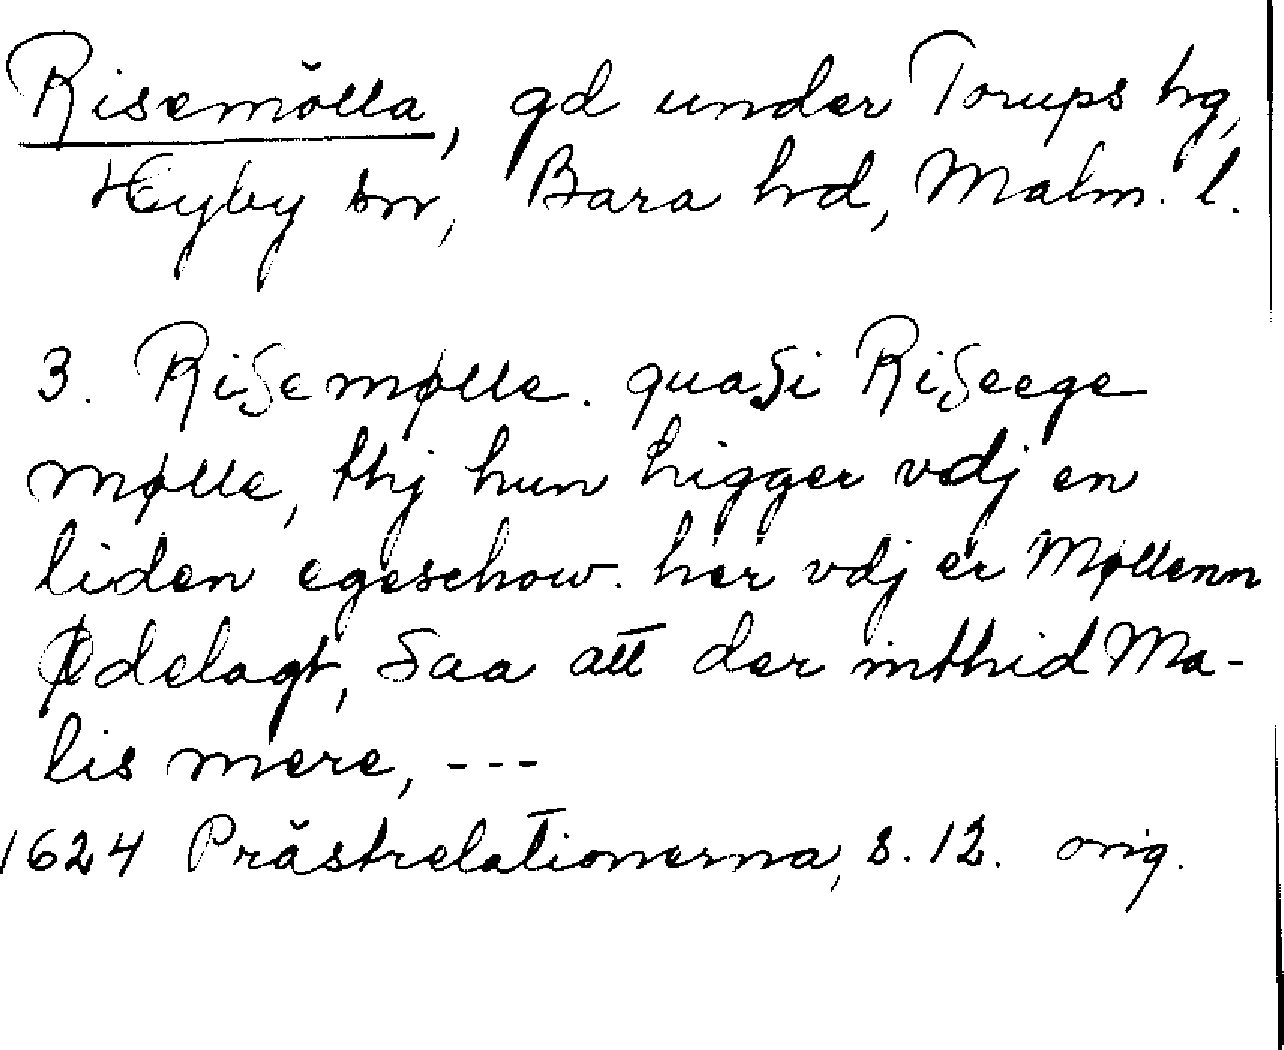 Risemölla, gd under Torups hg,
Hyby sn, Bara hd, Malm. l.
3. Risemølle. quasi Riseege
mølle, thj hun ligger vdj en
liden egeschow. her vdj er Møllenn
Ødelagt, Saa att der inthid Ma-
lis mere, ---
1624 Prästrelationerna, s. 12. orig.